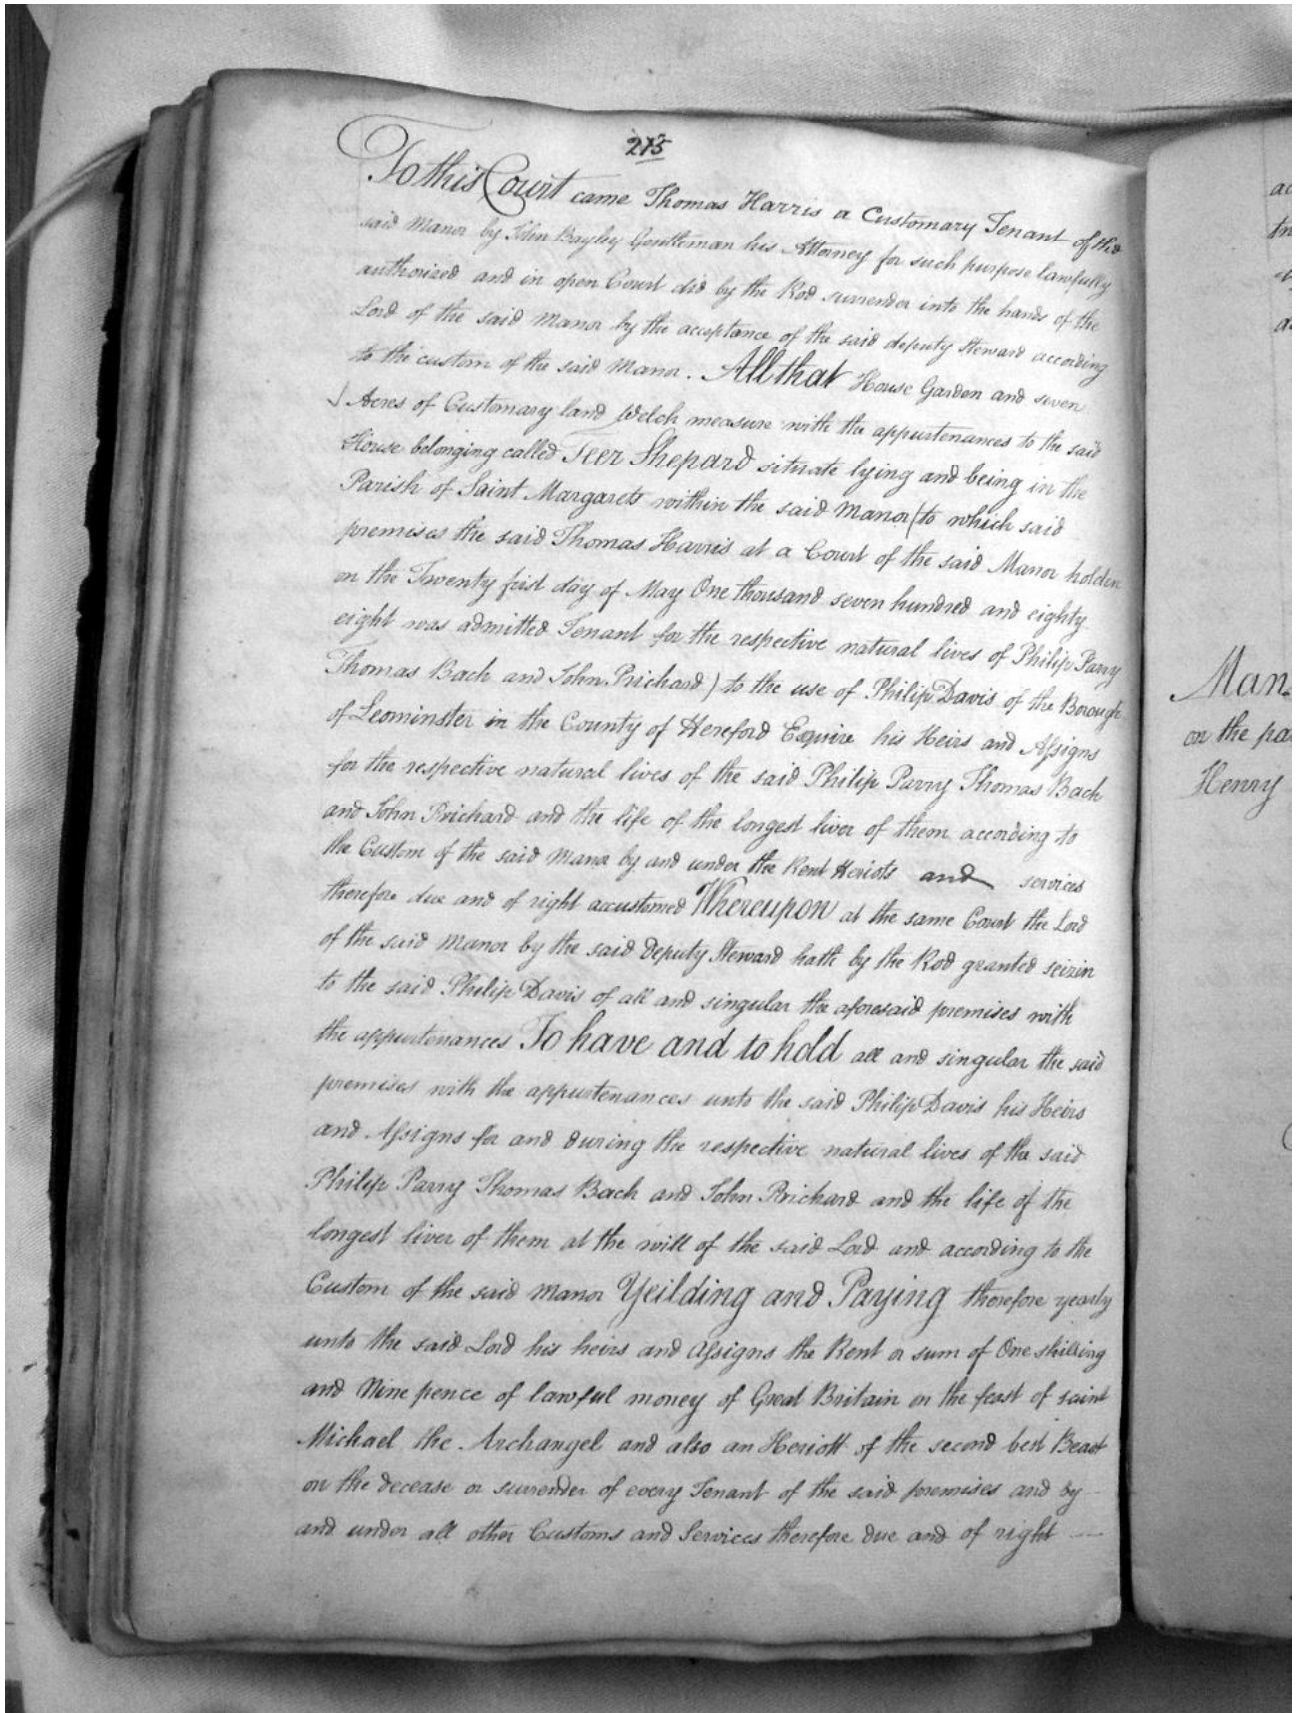 213
To this Court came Thomas Harris a Customary Tenant of the
said Manor by John Bayley Gentleman his Attorney for such purpose lawfully
authorized and in open Court did by the Rod surrender into the hands of the
Lord of the said Manor by the acceptance of the said deputy Steward according
to the custom of the said Manor. All that House Garden and seven
Acres of Customary land Welch measure with the appurtenances to the said
House belonging called Teer Shepard situate lying and being in the
Parish of Saint Margarets within the said Manor (to which said
premises the said Thomas Harris at a Court of the said Manor holden
on the Twenty first day of May One thousand seven hundred and eighty
eight was admitted Tenant for the respective natural lives of Philip Parry
Thomas Bach and John Prichard) to the use of Philip Davis of the Borough
of Leominster in the County of Hereford Esquire his Heirs and Assigns
for the respective natural lives of the said Philip Parry Thomas Bach
and John Prichard and the life of the longest liver of them according to
the Custom of the said Manor by and under the Rent Heriots and services
therefore due and of right accustomed Whereupon at the same Court the Lord
of the said Manor by the said Deputy Steward hath by the Rod granted seizin
to the said Philip Davis of all and singular the aforesaid premises with
the appurtenances To have and to hold all and singular the said
premises with the appurtenances unto the said Philip Davis his Heirs
and Assigns for and during the respective natural lives of the said
Philip Parry Thomas Bach and John Prichard and the life of the
longest liver of them at the will of the said Lord and according to the
Custom of the said Manor Yeilding and Paying therefore yearly
unto the said Lord his heirs and Assigns the Rent or sum of One shilling
and Nine pence of lawful money of Great Britain on the feast of saint
Michael the Archangel and also an Heriott of the second best Beast
on the decease or surrender of every Tenant of the said premises and by
and under all other Customs and Services therefore due and of right
Man
on the pa
Henry